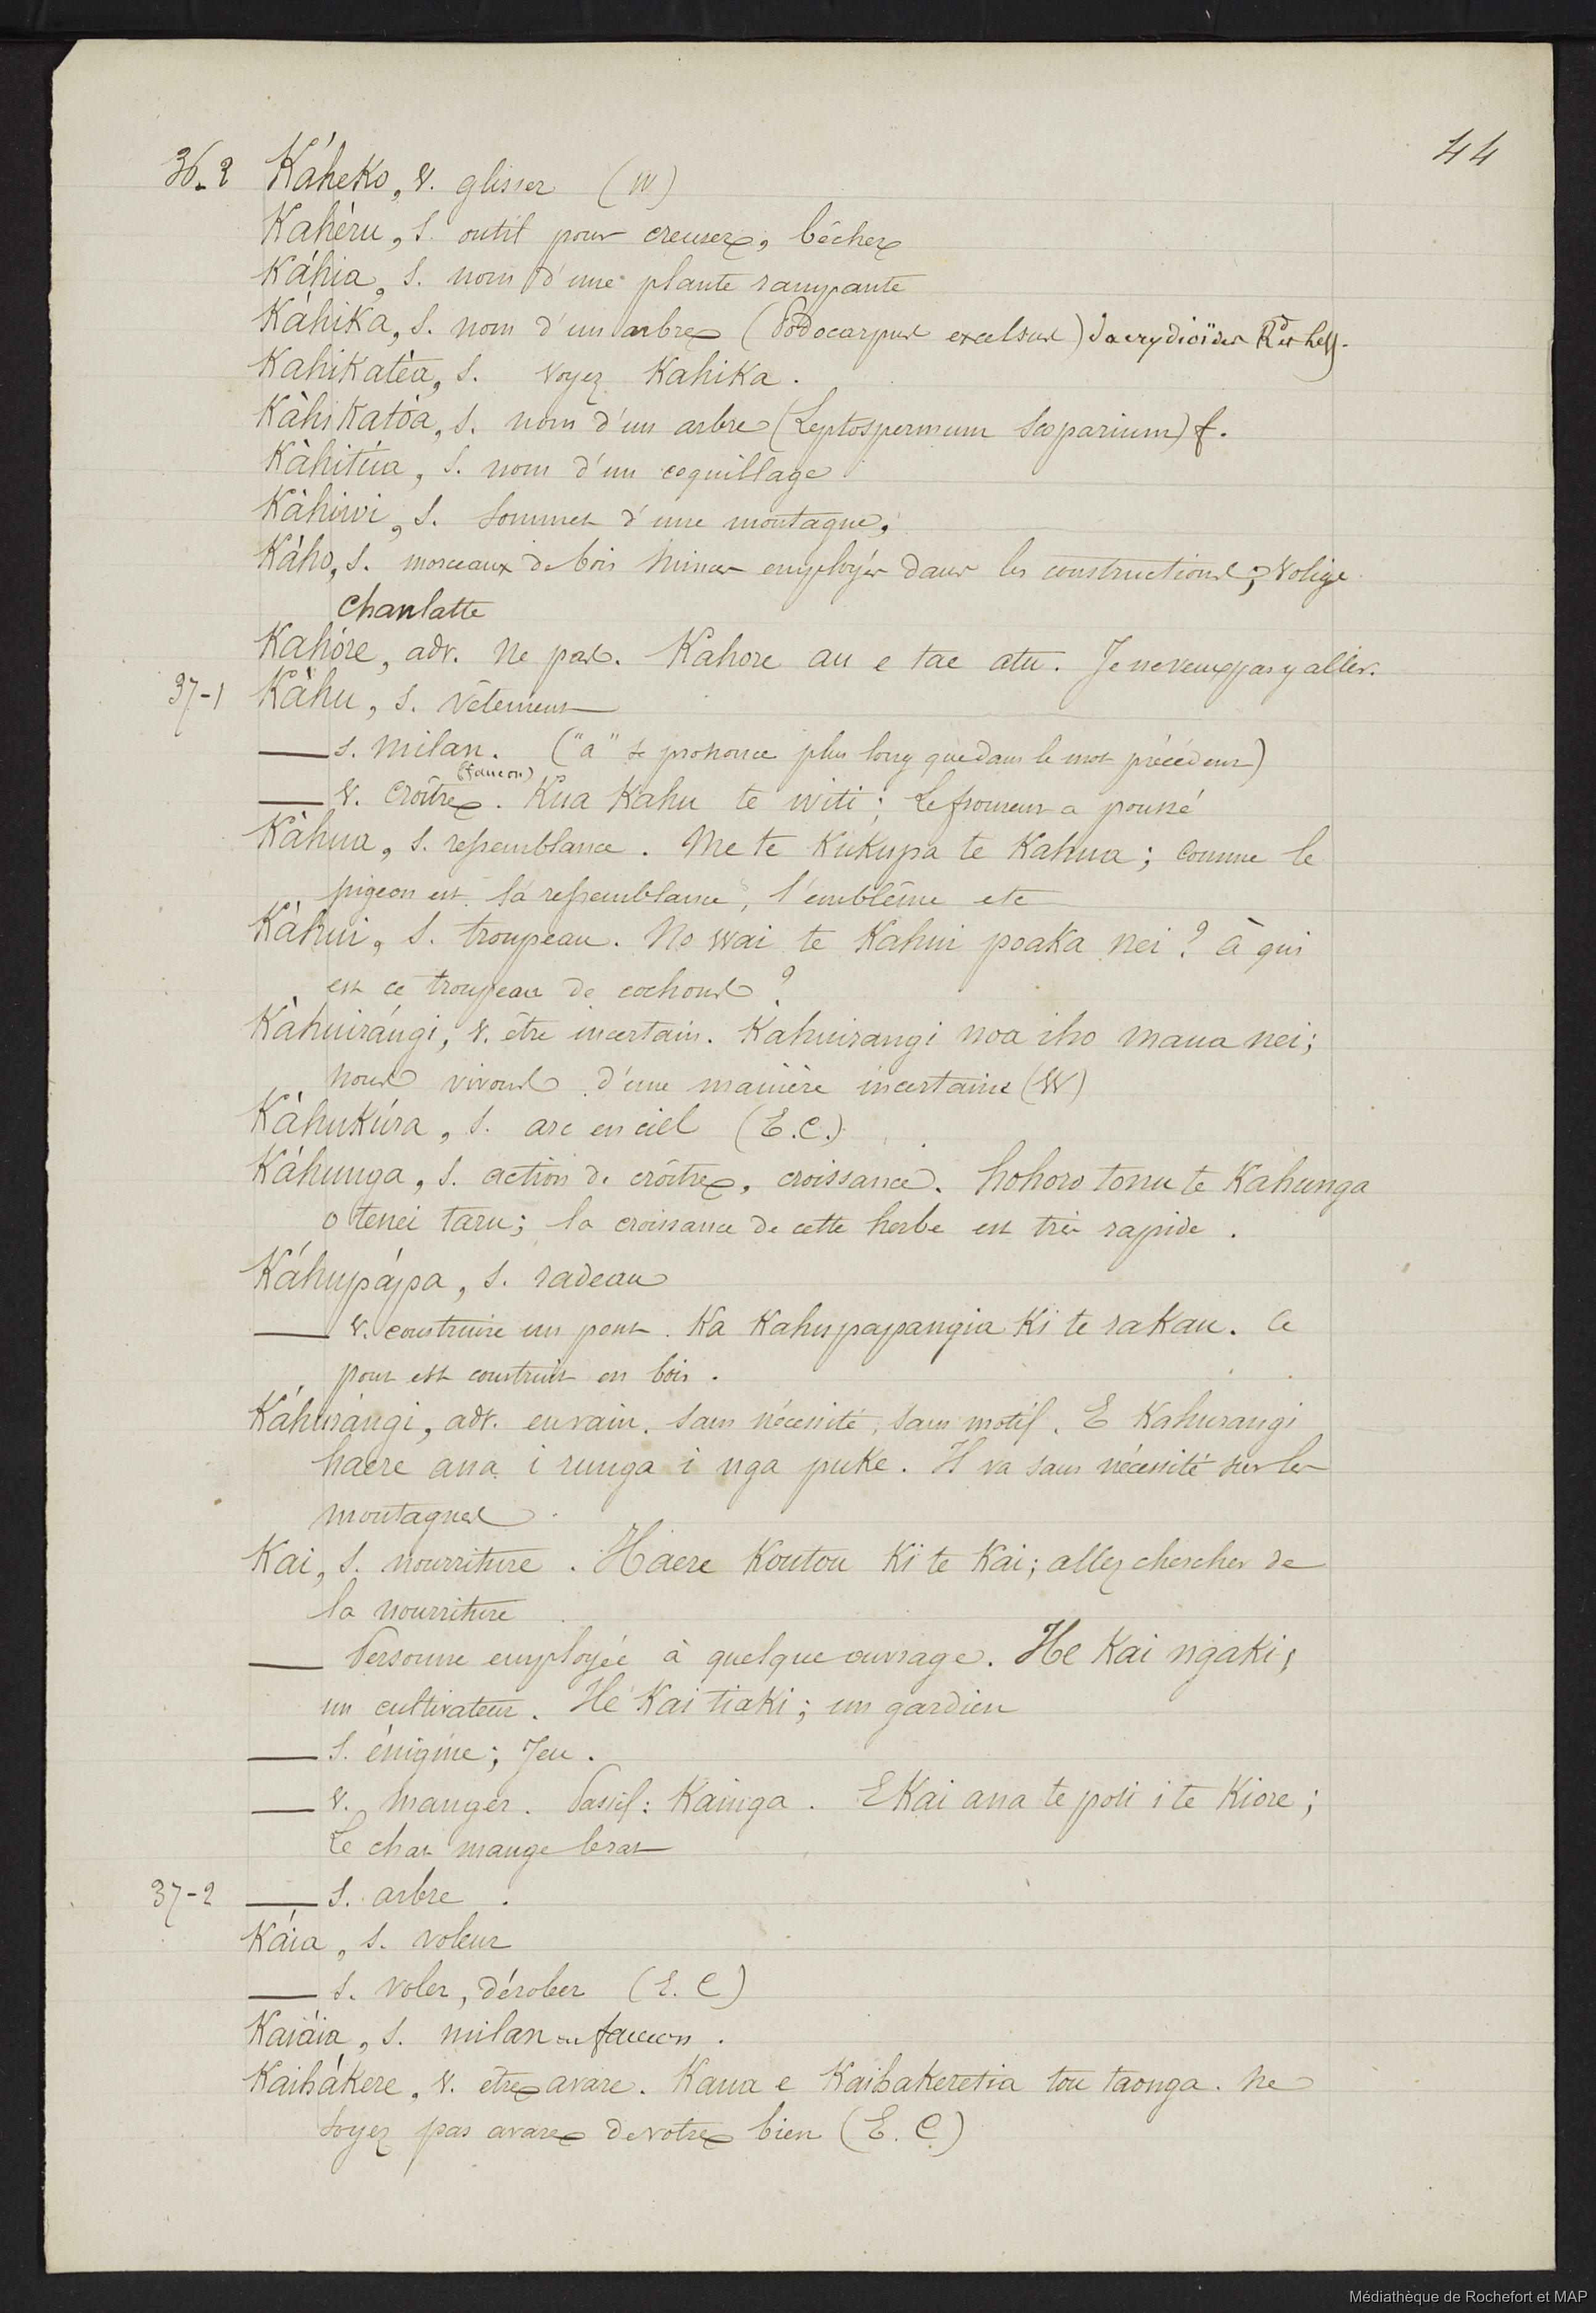 44
36-2 Káheko, v. glisser (W)
Kahèru, s. outil pour creuser, bêcher
Káhia, s. nom d'une plante rampante
Kàhika, s. nom d'un arbre (Podocarpus excelsus)
Kahikatèa, s. voyez Kahika.
Kàhikatòa, s. nom d'un arbre (Leptospermum scoparium) f.
Kàhitúa, s. nom d'un coquillage
Kàhiwi, s. sommet d'une montagne,
Káho, s. morceaux de bois minces employés dans les constructions; volige
Chanlatte
Kahóre, adv. ne pas. Kahore au e tae atu. Je ne veux pas y aller.
37-1 Kàhu, s. vêtement
— s. milan. ("a" se prononce plus long que dans le mot précédent)
(faucon)
— v. croître. Kua Kahu te witi; Le froment a poussé
Kàhua, s. ressemblance. Me te Kukupa te Kahua; comme le
pigeon est sa ressemblance, l'emblême etc
Kàhui, s. troupeau. No wai te Kahui poaka nei? à qui
est ce troupeau de cochons?
Kàhuirángi, v. être incertain. Kahuirangi noa iho maua nei;
nous vivons d'une manière incertaine (W)
Kàhukúra, s. arc en ciel (E.C.)
Káhunga, s. action de croître, croissance. hohoro tonu te Kahunga
o tenei taru; la croissance de cette herbe est très rapide.
Káhupápa, s. radeau
— v. construire un pont. Ka Kahupapangia Ki te rakau. Ce
pont est construit en bois.
Káhurángi, adv. en vain. sans nécessité, sans motif. E Kahurangi
haere ana i runga i nga puke. Il va sans nécessité sur les
montagnes
Kai, s. nourriture. Haere Koutou Ki te Kai; allez chercher de
la nourriture
— Personne employée à quelque ouvrage. He Kai ngaki;
un cultivateur. He Kai tiaki; un gardien
— s. énigme; Jeu.
— v. manger. Passif: Kainga. E Kai ana te poti i te Kiore;
Le chat mange le rat
37-2 — s. arbre.
Káia, s. voleur
— s. voler, dérober (E. C)
Kaiáia, s. milan ou faucon.
Kaihákere, v. être avare. Kaua e Kaihakeretia tou taonga. ne
soyez pas avare de votre bien (E. C.)
Médiathèque de Rochefort et MAP